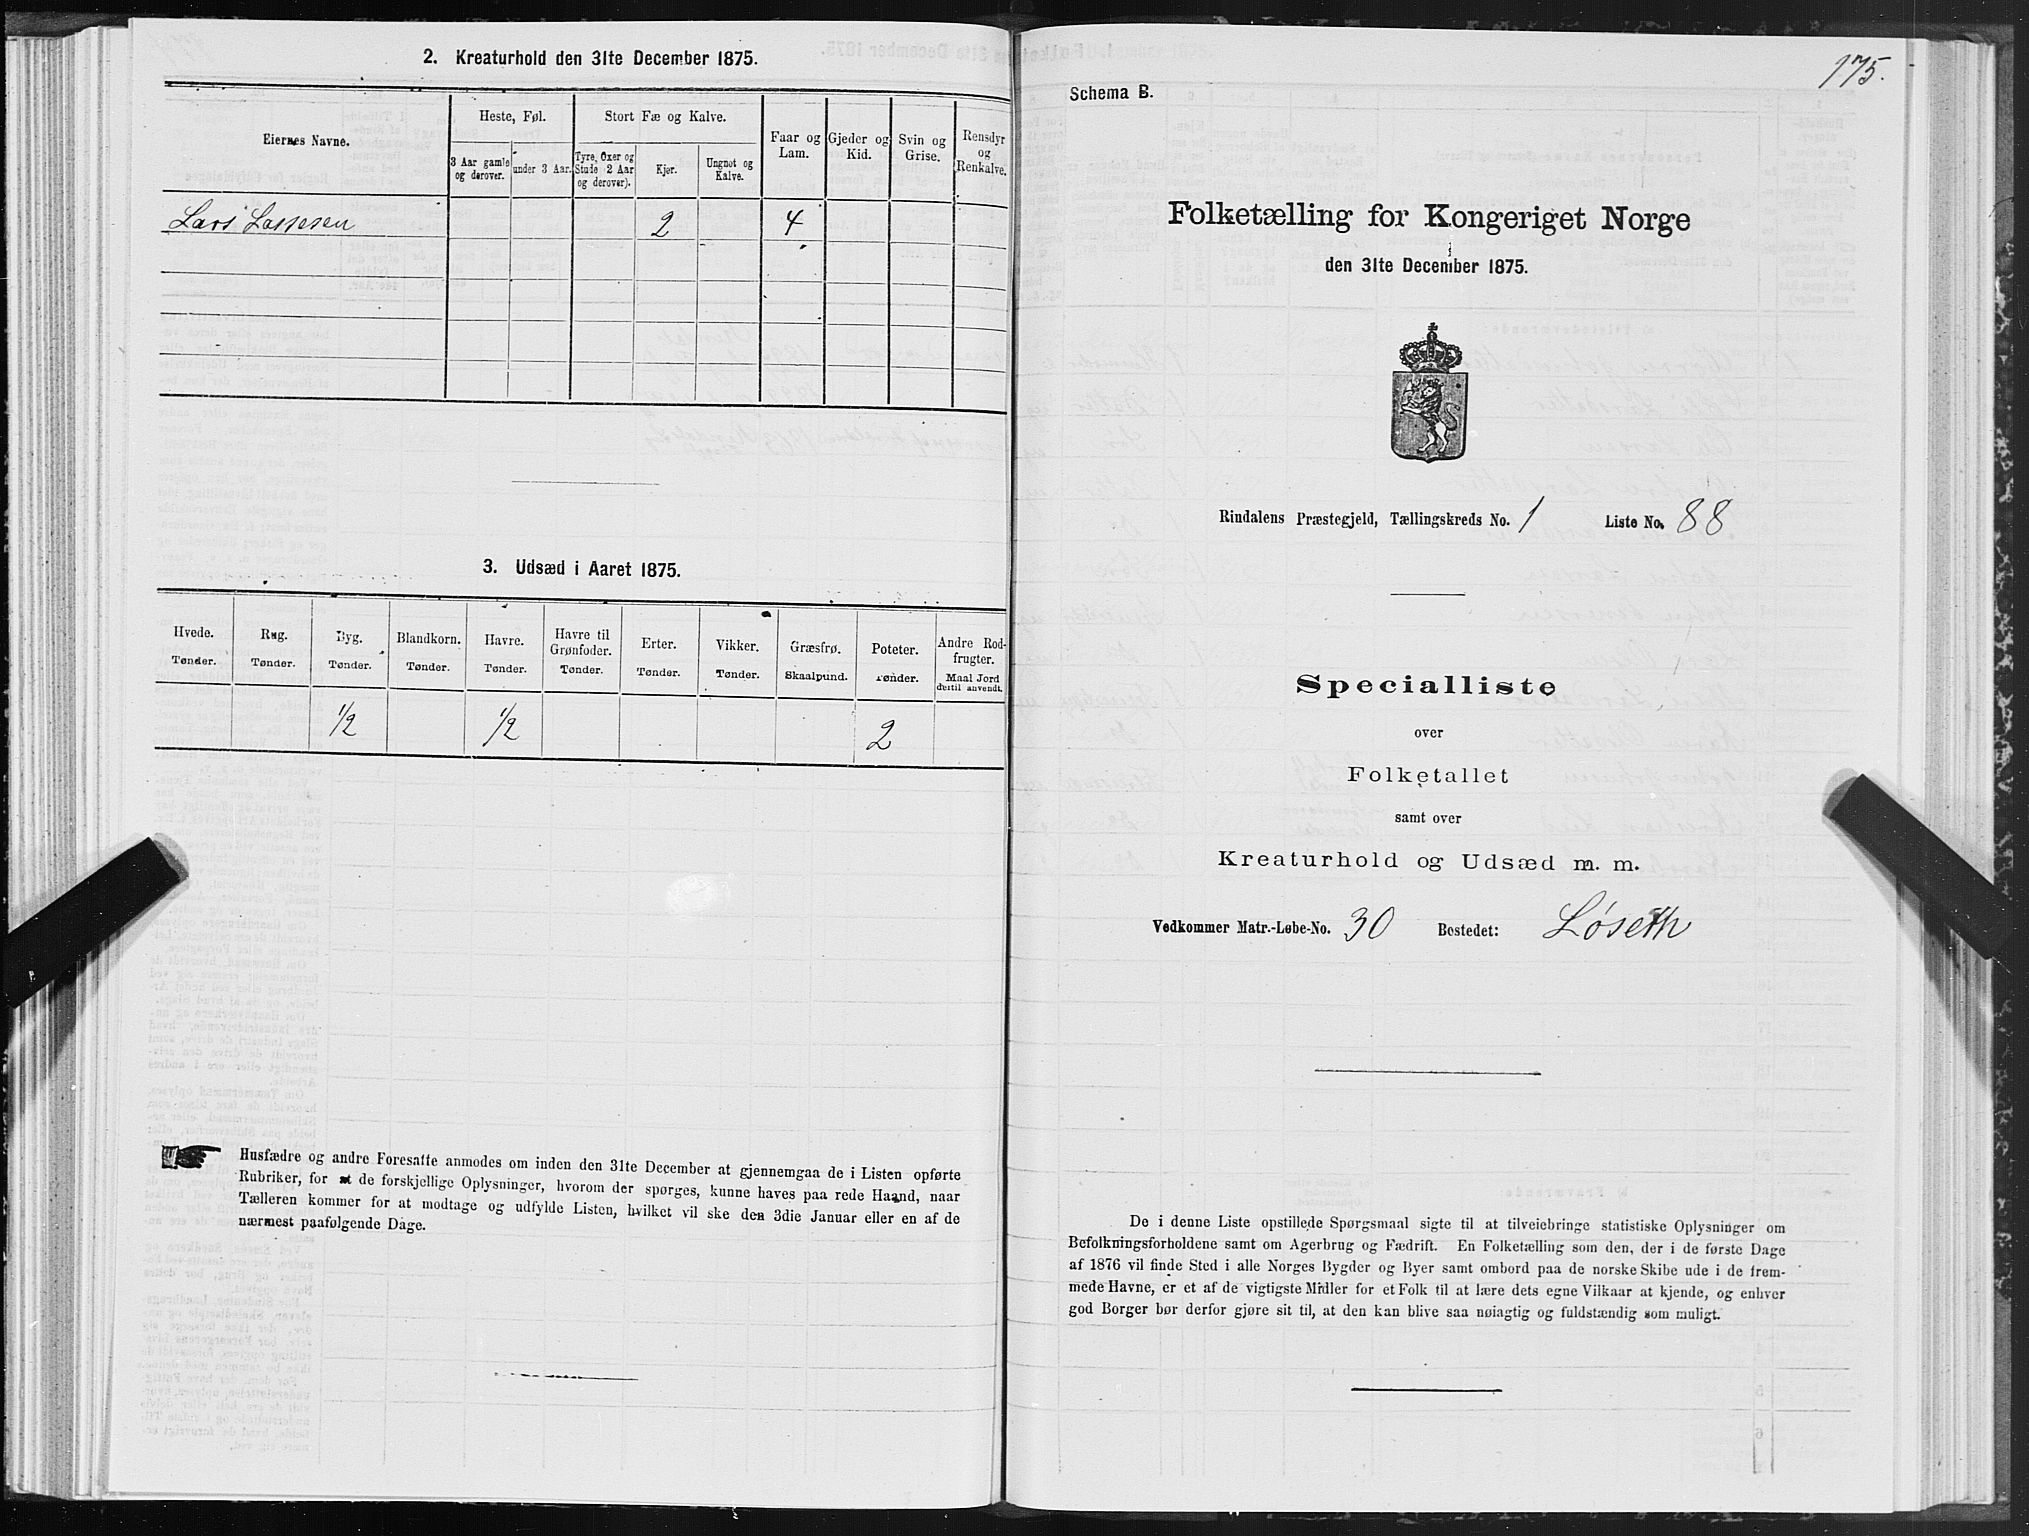 2. Kreaturhold den 31te December 1875.
Eiernes Navne.
Heste, Føl.
Stort Fæ og Kalve.
Faar og Lam.
Gjeder og Kid.
Svin og Grise.
Rensdyr og Renkalve.
3 Aar gamle og derover.
under 3 Aar.
Tyre, Oxer og Stude 2 Aar og derover).
Kjør.
Ungnøt og Kalve.
Lars Lassesen 2 4
3. Udsæd i Aaret 1875.
Hvede. Rug. Byg. Blandkorn. Havre. Havre til Grønfoder. Erter. Vikker. Græsfrø. Poteter. Andre Rodfrugter.
Tønder. Tønder. Tønder. Tønder. Tønder. Tønder. Tønder. Tønder. Skaalpund. Tønder. Maal Jord dertil anvendt.
1/2 1/2 2
Husfædre og andre Foresatte anmodes om inden den 31te December at gjennemgaa de i Listen opførte
Rubriker, for at de forskjellige Oplysninger, hvorom der spørges, kunne haves paa rede Haand, naar
Tælleren kommer for at modtage og udfylde Listen, hvilket vil ske den 3die Januar eller en af de
nærmest paafølgende Dage.
175.
Schema B.
Folketælling for Kongeriget Norge
den 31te December 1875.
Rindalens Præstegjeld, Tællingskreds No. 1 Liste No. 88
Specialliste
over
Folketallet
samt over
Kreaturhold og Udsæd m. m.
Vedkommer Matr.-Løbe-No. 30 Bostedet: Løseth
De i denne Liste opstillede Spørgsmaal sigte til at tilveiebringe statistiske Oplysninger om
Befolkningsforholdene samt om Agerbrug og Fædrift. En Folketælling som den, der i de første Dage
af 1876 vil finde Sted i alle Norges Bygder og Byer samt ombord paa de norske Skibe ude i de frem-
mede Havne, er et af de vigtigste Midler for et Folk til at lære dets egne Vilkaar at kjende, og enhver
god Borger bør derfor gjøre sit til, at den kan blive saa nøiagtig og fuldstændig som muligt.